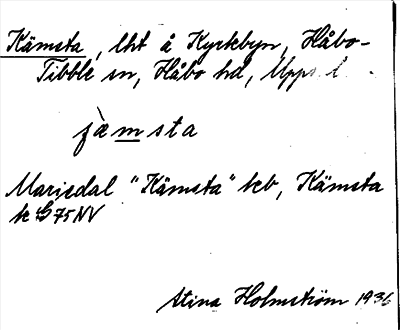 Kämsta, lht å Kyrkebyn, Håbo-
Tibble sn, Håbo hd, Upps. l
jämsta
Mariedal "Kämsta" teb, Kämsta
te G75NV
Stina Holmström 1936